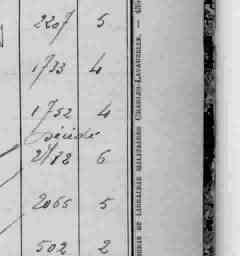 2207 5
1733 4
1752 4
décidé
2172 6
2065 5
502 2
MERIE ET LIBRAIRIE MILITAIRES CHARLES-LAVAUZELLE. —